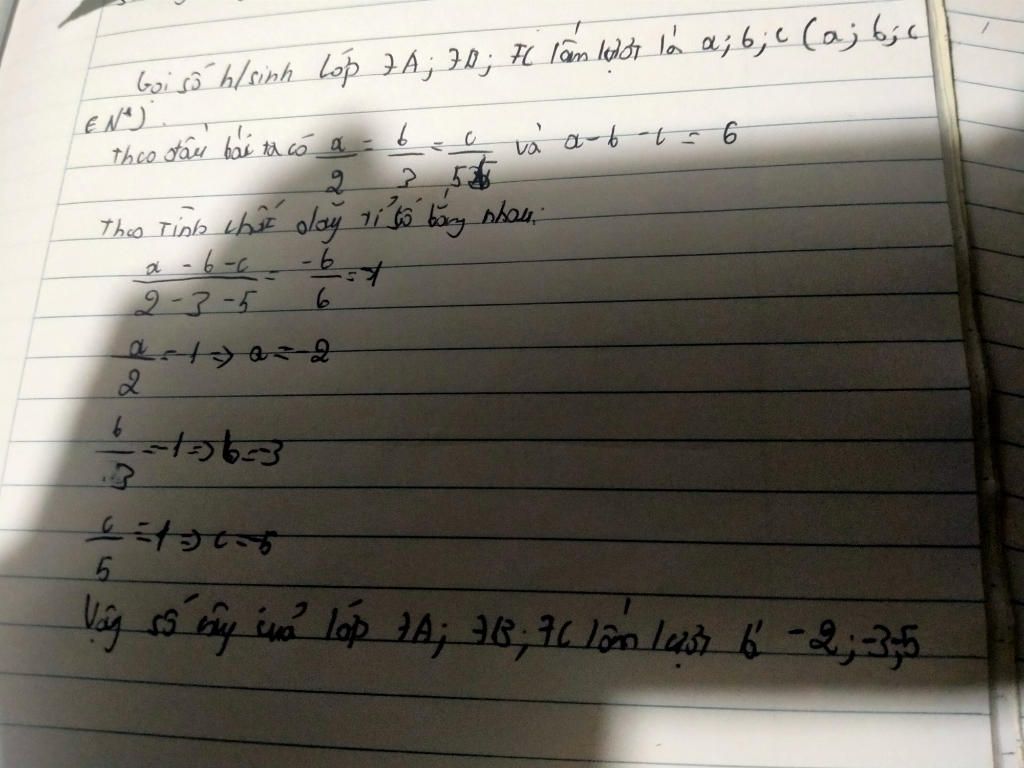 Gọi số h/sinh lớp 7A; 7B; 7C lần lượt là a; b; c (a; b; c
∈ N*).
Theo đầu bài ta có a/2 = b/3 = c/5 và a - b - c = 6
Theo tính chất dãy tỉ số bằng nhau:
(a - b - c)/(2 - 3 - 5) = -6/6 = -1
a/2 = -1 => a = -2
b/3 = -1 => b = -3
c/5 = -1 => c = -5
Vậy số cây của lớp 7A; 7B; 7C lần lượt là -2; -3; -5